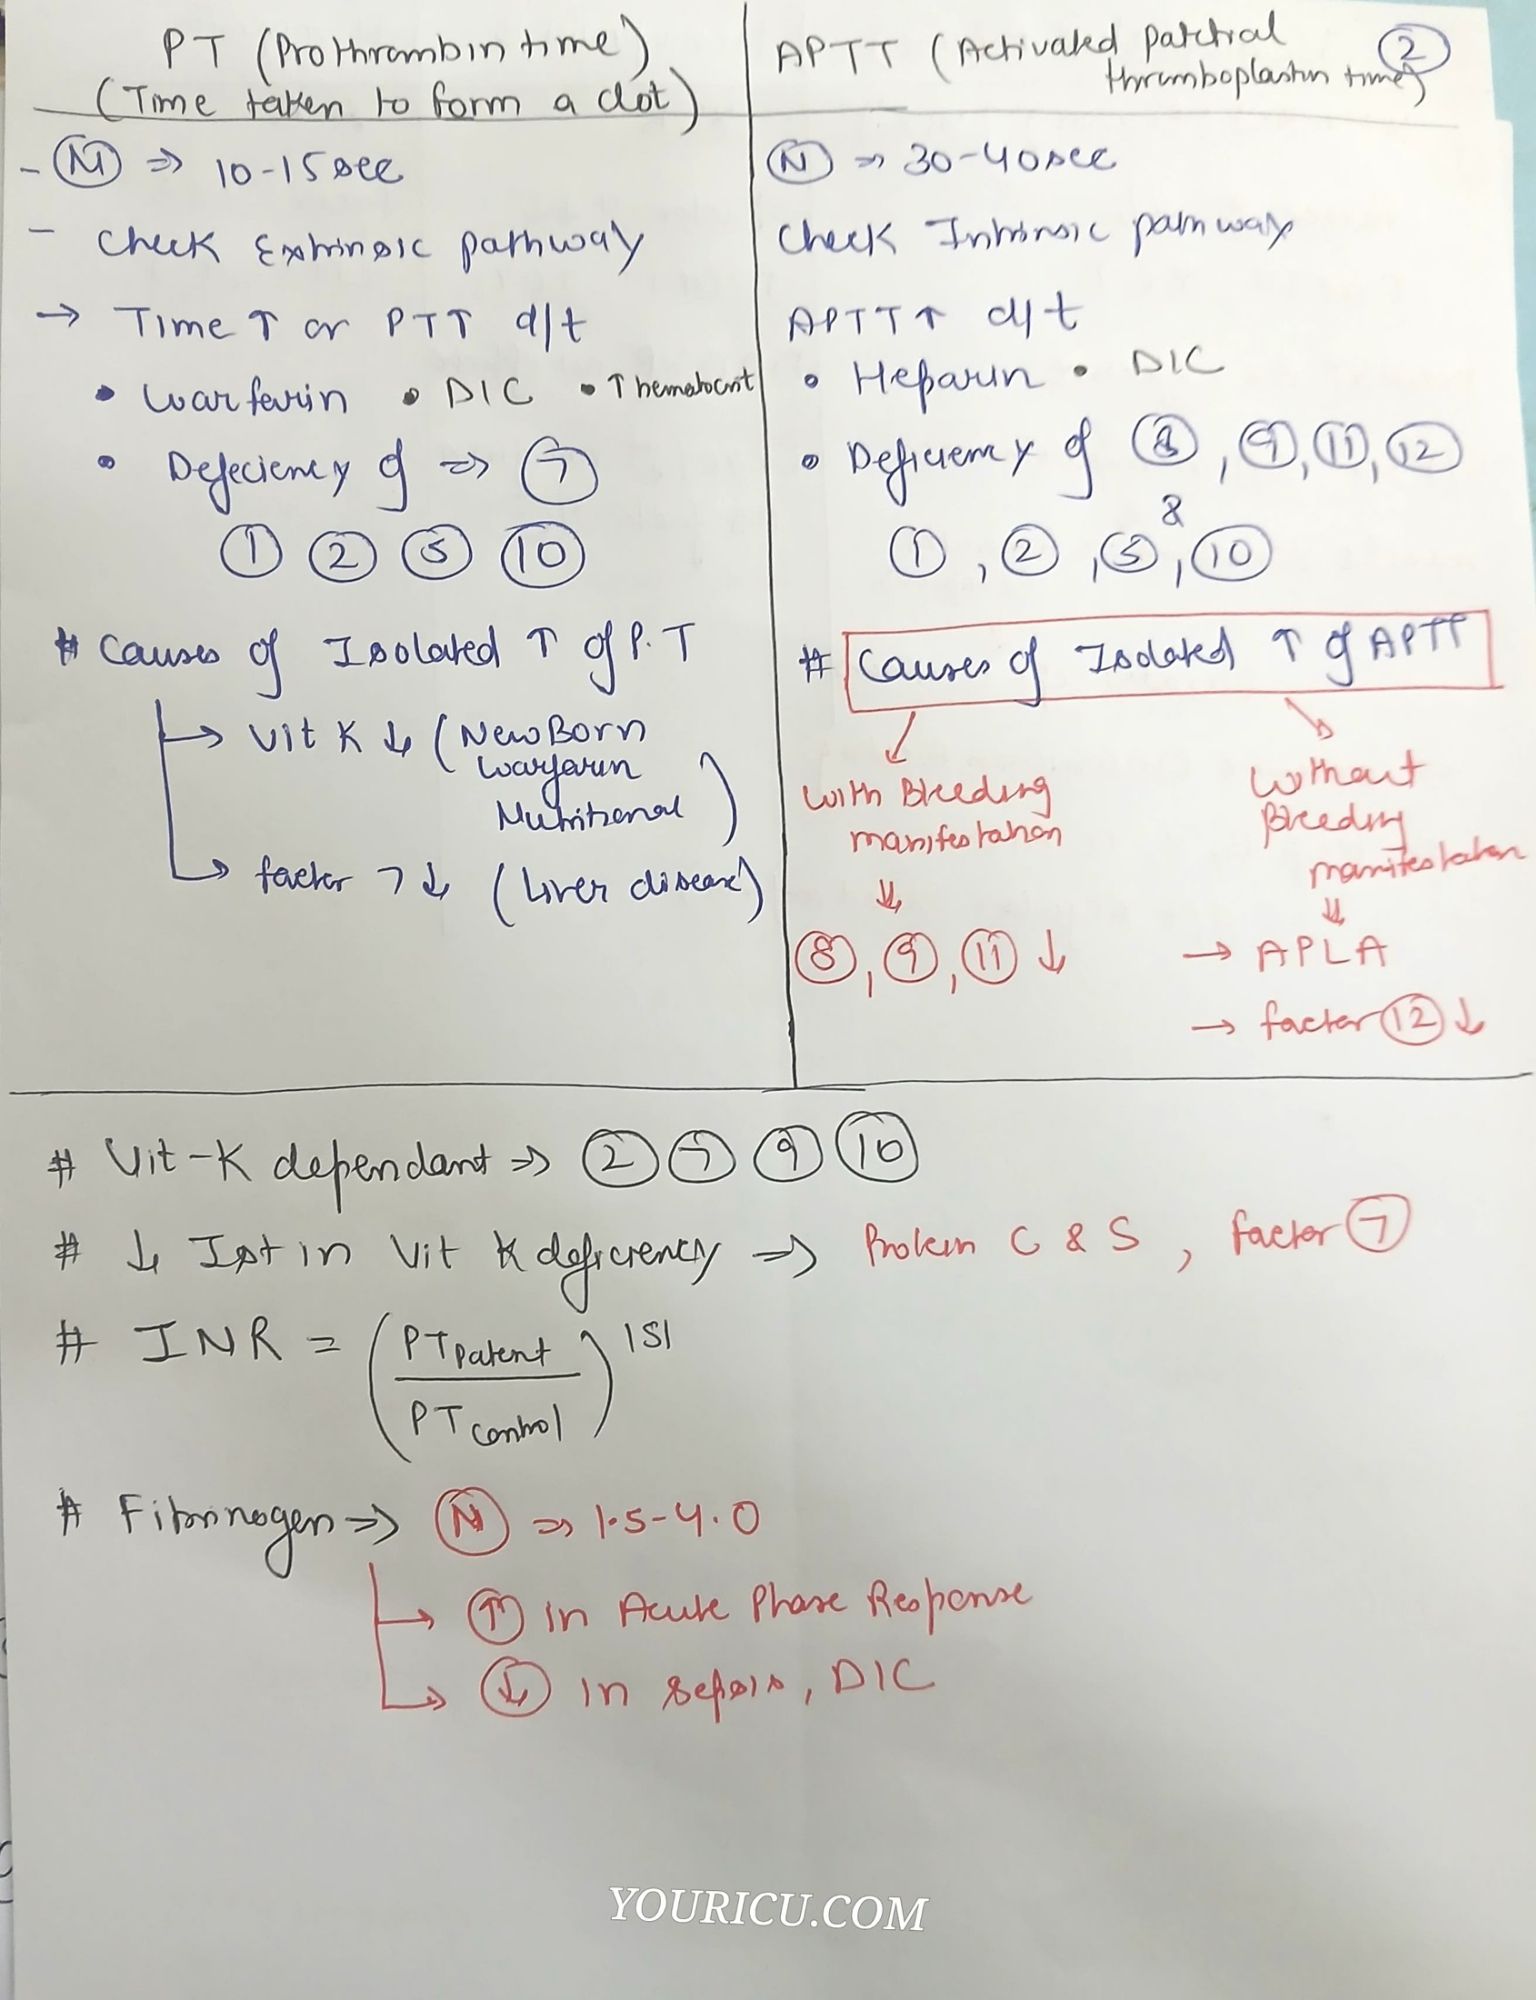 PT (Prothrombin time)
(Time taken to form a clot)
- N ⇒ 10-15 sec
- Check Extrinsic pathway
→ Time ↑ or PTT↑ d/t
• Warfarin • DIC • ↑ hematocrit
• Defeciency of ⇒ 7
1 2 5 10
# Causes of Isolated ↑ of P.T
→ Vit K ↓ (New Born
Warfarin
Nutritional)
→ factor 7 ↓ (Liver disease)
APTT (Activated patrial 2
thromboplastin time)
N ⇒ 30-40 sec
Check Intrinsic pathway
APTT↑ d/t
• Heparin • DIC
• Deficiency of 8, 9, 11, 12
&
1, 2, 5, 10
# Causes of Isolated ↑ of APTT
With Bleeding
manifestation
⇓
8, 9, 11 ↓
Without
Bleeding
manifestation
⇓
→ APLA
→ factor 12 ↓
# Vit-K dependant ⇒ 2 7 9 10
# ↓ Ist in Vit K deficiency ⇒ Protein C & S, Factor 7
# INR = (PT Patient / PT Control) ISI
# Fibrinogen ⇒ N ⇒ 1.5-4.0
→ ↑ in Acute Phase Response
→ ↓ in sepsis, DIC
YOURICU.COM